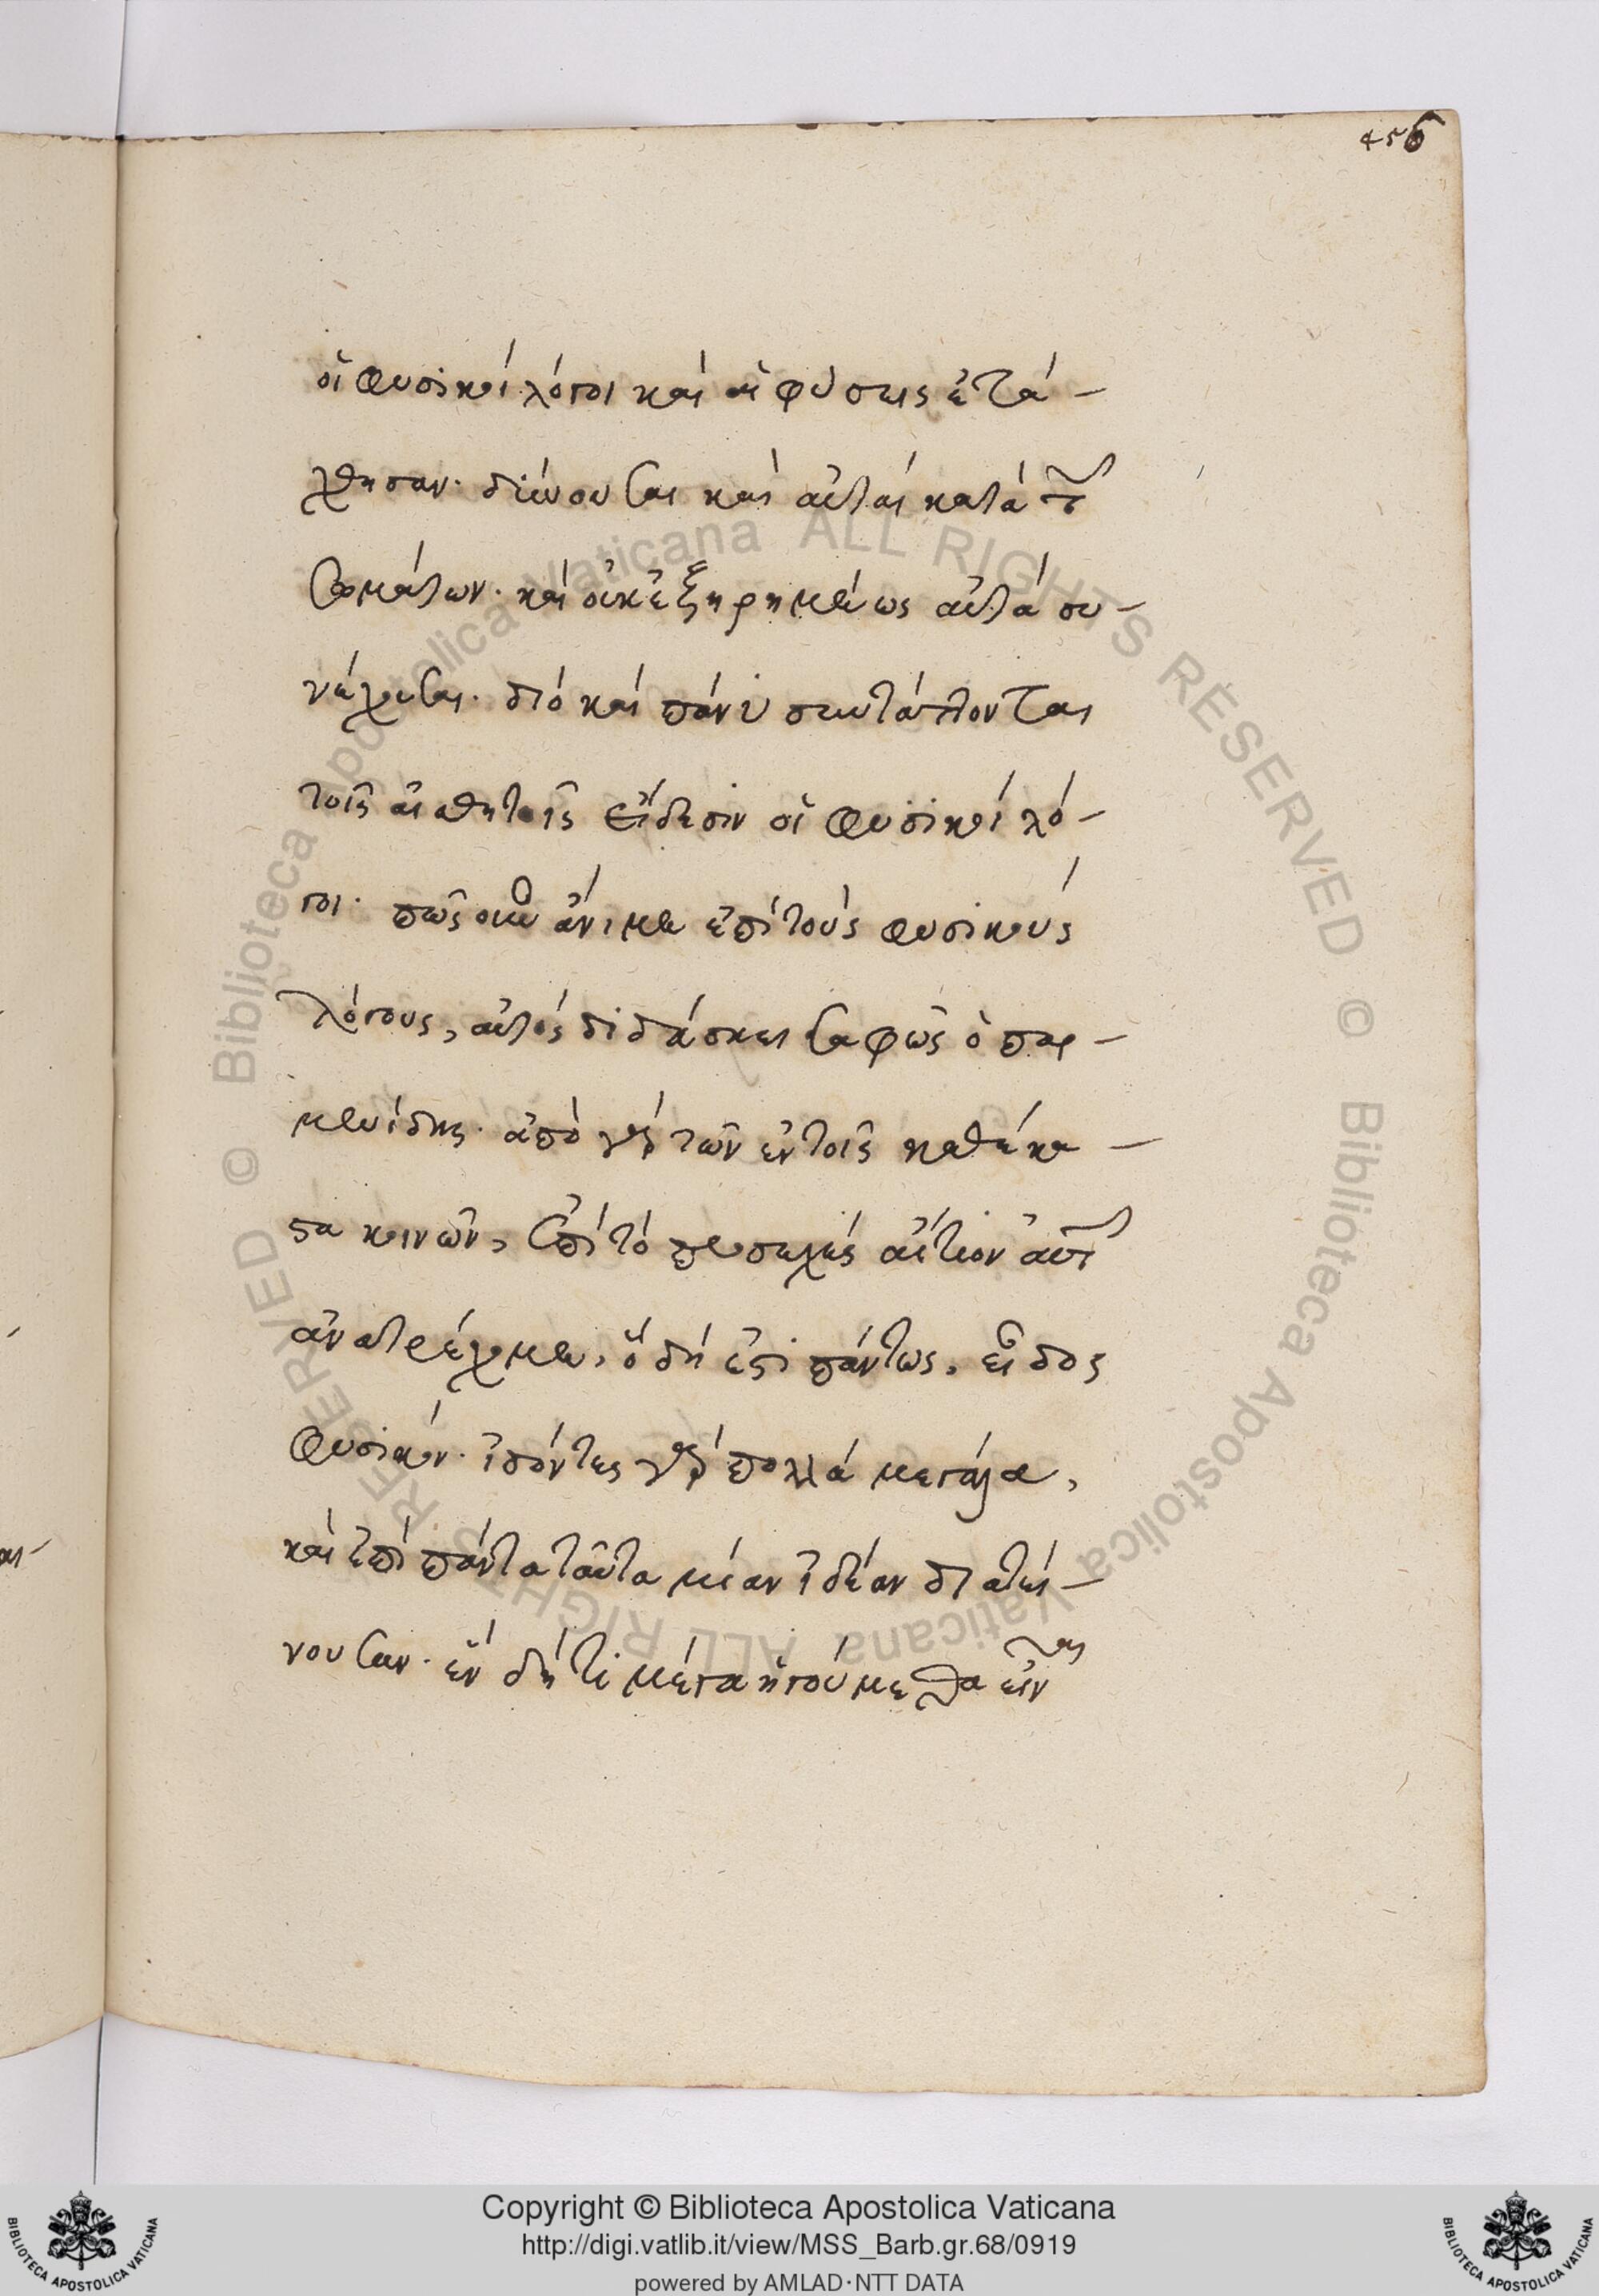 456
οἱ φυσικοὶ λόγοι καὶ αἱ φύσεις ἐτά-
χθησαν. δύνουσαι καὶ αὗται κατὰ τῶν
σωμάτων. καὶ οὐκ ἐξῃρημένως αὐτὰ συ-
νέχουσαι. διὸ καὶ πάνυ συντάττονται
τοῖς αἰσθητοῖς εἴδεσιν οἱ φυσικοὶ λό-
γοι. πῶς οὖν ἄνιμεν ἐπὶ τοὺς φυσικοὺς
λόγους, αὐτὸς διδάσκει σαφῶς ὁ παρ-
μενίδης. ἀπὸ γὰρ τῶν ἐν τοῖς καθέκα-
στα κοινῶν, ἐπὶ τὸ προσεχὲς αἴτιον αὐτῶν
ἀνατρέχομεν, ὃ δή ἐστι πάντως, εἶδος
φυσικόν. ἰδόντες γὰρ πολλὰ μεγάλα,
καὶ ἐπὶ πάντα ταῦτα μίαν ἰδέαν διατεί-
νουσαν. ἕν δή τι μέγα ἡγούμεθα εἶναι
Copyright © Biblioteca Apostolica Vaticana
http://digi.vatlib.it/view/MSS_Barb.gr.68/0919
powered by AMLAD·NTT DATA
BIBLIOTECA APOSTOLICA VATICANA
BIBLIOTECA APOSTOLICA VATICANA
© Biblioteca Apostolica Vaticana ALL RIGHTS RESERVED © Biblioteca Apostolica Vaticana ALL RIGHTS RESERVED